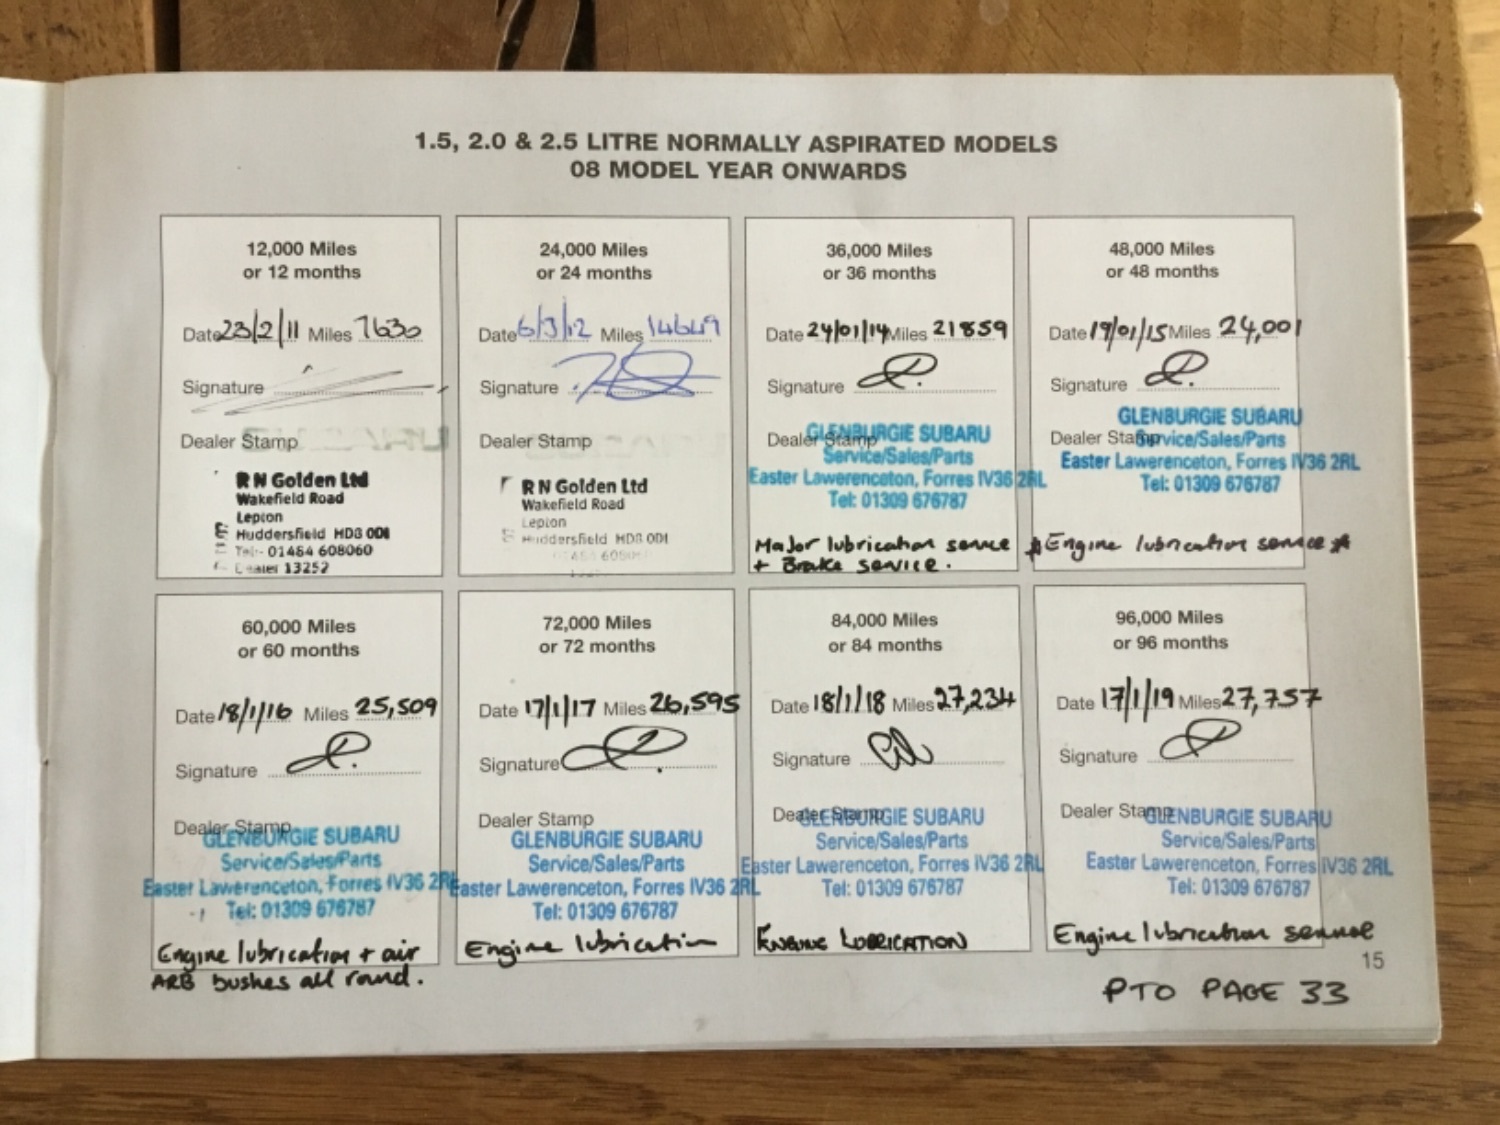 1.5, 2.0 & 2.5 LITRE NORMALLY ASPIRATED MODELS
08 MODEL YEAR ONWARDS
12,000 Miles
or 12 months
Date 23/2/11 Miles 7630
Signature
Dealer Stamp
R N Golden Ltd
Wakefield Road
Lepton
Huddersfield HD8 0DL
Tel:- 01484 608060
Dealer 13252
24,000 Miles
or 24 months
Date 6/3/12 Miles 14649
Signature
Dealer Stamp
R N Golden Ltd
Wakefield Road
Lepton
Huddersfield HD8 0DL
36,000 Miles
or 36 months
Date 24/01/14 Miles 21859
Signature
Dealer Stamp
GLENBURGIE SUBARU
Service/Sales/Parts
Easter Lawerenceton, Forres IV36 2RL
Tel: 01309 676787
Major lubrication service
+ Brake service.
48,000 Miles
or 48 months
Date 19/01/15 Miles 24,001
Signature
Dealer Stamp
GLENBURGIE SUBARU
Service/Sales/Parts
Easter Lawerenceton, Forres IV36 2RL
Tel: 01309 676787
* Engine lubrication service *
60,000 Miles
or 60 months
Date 18/1/16 Miles 25,509
Signature
Dealer Stamp
GLENBURGIE SUBARU
Service/Sales/Parts
Easter Lawerenceton, Forres IV36 2RL
Tel: 01309 676787
Engine lubrication + air
ARB bushes all round.
72,000 Miles
or 72 months
Date 17/1/17 Miles 26,595
Signature
Dealer Stamp
GLENBURGIE SUBARU
Service/Sales/Parts
Easter Lawerenceton, Forres IV36 2RL
Tel: 01309 676787
Engine lubrication
84,000 Miles
or 84 months
Date 18/1/18 Miles 27,234
Signature
Dealer Stamp
GLENBURGIE SUBARU
Service/Sales/Parts
Easter Lawerenceton, Forres IV36 2RL
Tel: 01309 676787
ENGINE LUBRICATION
96,000 Miles
or 96 months
Date 17/1/19 Miles 27,757
Signature
Dealer Stamp
GLENBURGIE SUBARU
Service/Sales/Parts
Easter Lawerenceton, Forres IV36 2RL
Tel: 01309 676787
Engine lubrication service
15
PTO PAGE 33